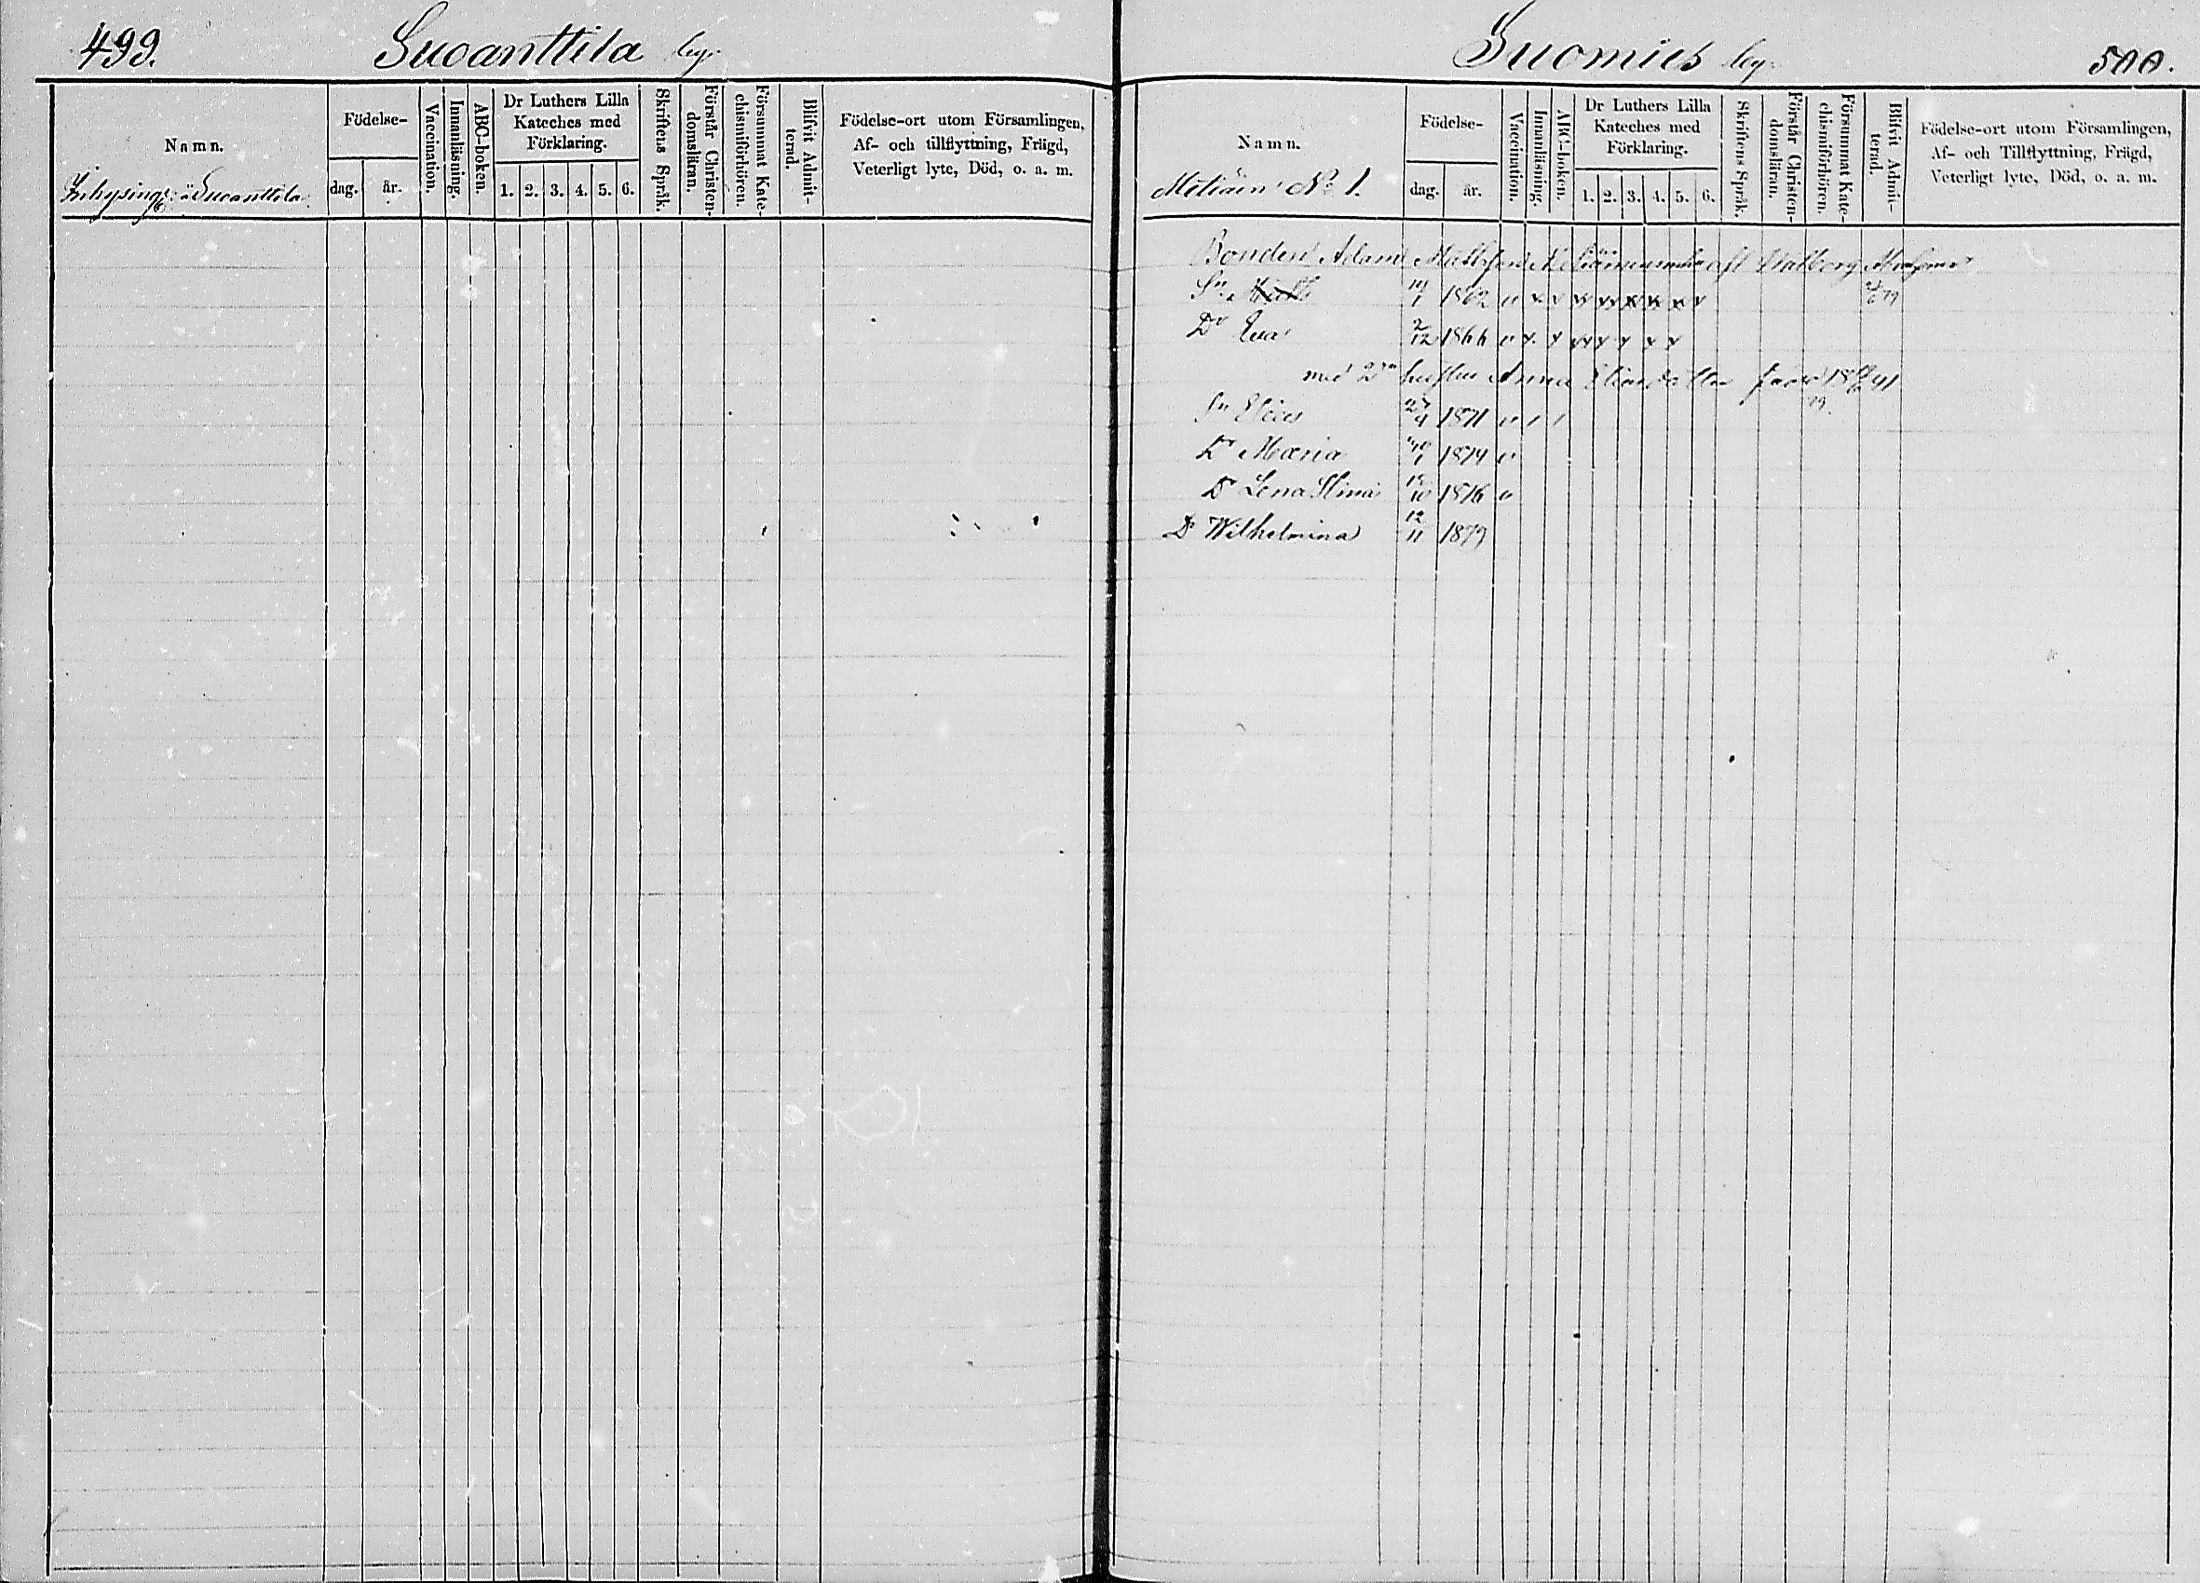 499. Suoanttila by.
Namn.
Inhysingr: i Suoanttila.
Födelse-
dag. år.
Vaccination.
Innanläsning.
ABC-boken.
Dr Luthers Lilla
Kateches med
Förklaring.
1. 2. 3. 4. 5. 6.
Skriftens Språk.
Förstår Christen-
domsläran.
Försummat Kate-
chismiförhören.
Blifvit Admit-
terad.
Födelse-ort utom Församlingen,
Af- och tillflyttning, Frägd,
Veterligt lyte, Död, o. a. m.
Suomies by. 500.
Namn.
Metiäin No 1.
Födelse-
dag. år.
Vaccination.
Innanläsning.
ABC-boken.
Dr Luthers Lilla
Kateches med
Förklaring.
1. 2. 3. 4. 5. 6.
Skriftens Språk.
Förstår Christen-
domsläran.
Försummat Kate-
chismiförhören.
Blifvit Admit-
terad.
Födelse-ort utom Församlingen,
Af- och Tillflyttning, Frägd,
Veterligt lyte, Död, o. a. m.
Bonden Adam Valborg
Sn Math 1862
Dr Eva 2/12 1866
med 2n hustru Anna
Sn Elias 1871
Dr Maria 1874
Dr Lena Stina 1876
Dr Wilhelmina 12/11 1879